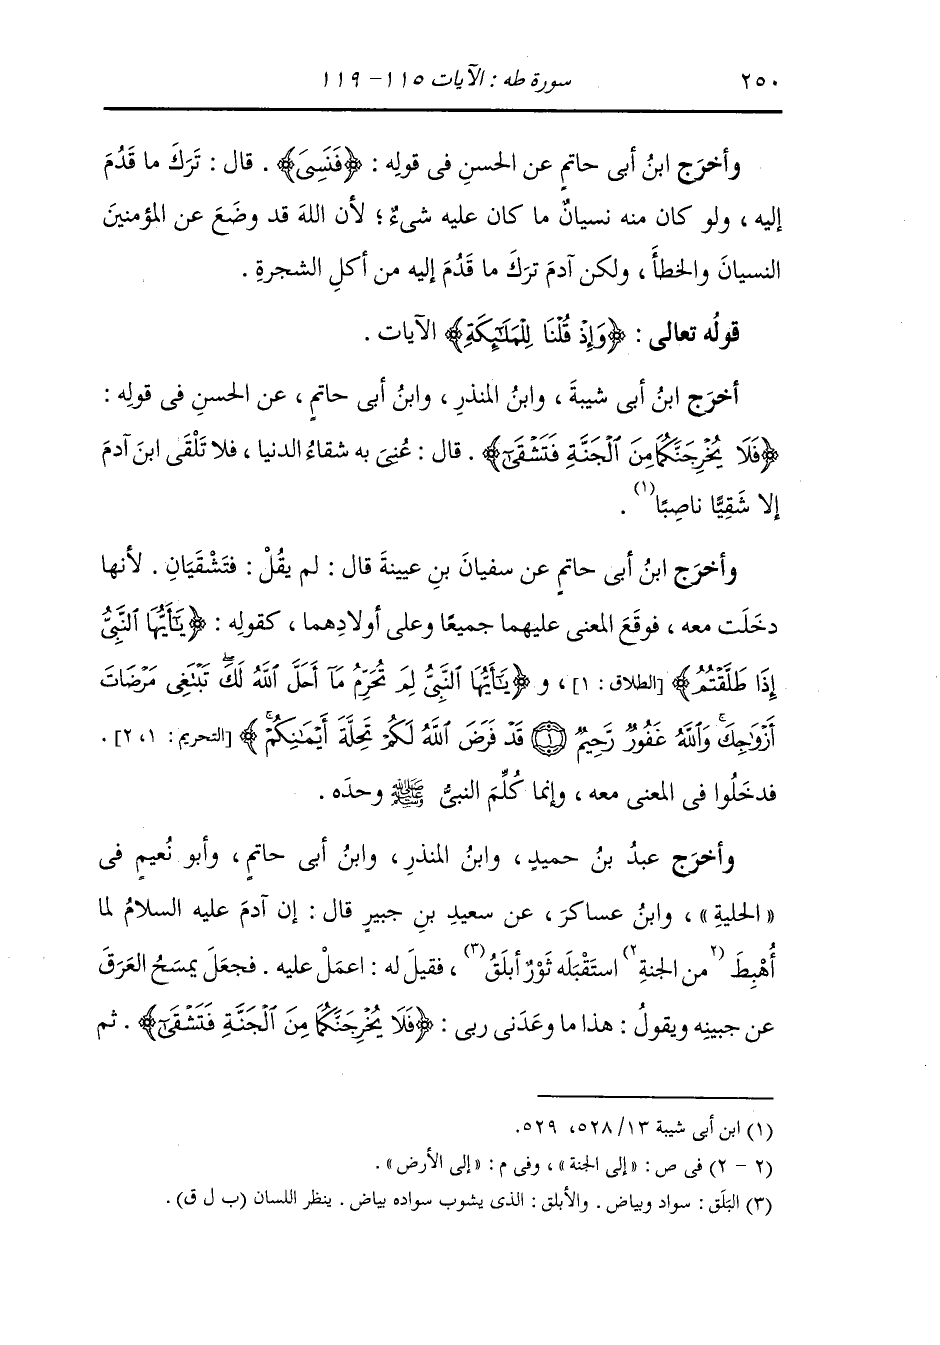 ٢٥٠ سورة طه : الآيات ١١٥- ١١٩
وأخرَج ابنُ أبى حاتمٍ عن الحسنِ فى قولِه : ﴿فَنَسِىَ﴾ . قال : تَرَكَ ما قَدُمَ
إليه ، ولو كان منه نسيانٌ ما كان عليه شىءٌ ؛ لأن اللهَ قد وضَعَ عن المؤمنينَ
النسيانَ والخطأَ ، ولكن آدمَ ترَكَ ما قَدُمَ إليه من أكلِ الشجرةِ .
قولُه تعالى : ﴿وَإِذْ قُلْنَا لِلْمَلَٰٓئِكَةِ﴾ الآيات .
أخرَج ابنُ أبى شيبةَ ، وابنُ المنذرِ ، وابنُ أبى حاتمٍ ، عن الحسنِ فى قولِه :
﴿فَلَا يُخْرِجَنَّكُمَا مِنَ ٱلْجَنَّةِ فَتَشْقَىٰٓ﴾ . قال : عُنِىَ به شقاءُ الدنيا ، فلا تَلْقَى ابنَ آدمَ
إلا شَقِيًّا ناصِبًا(١) .
وأخرَج ابنُ أبى حاتمٍ عن سفيانَ بنِ عيينةَ قال : لم يقُلْ : فتَشْقَيَانِ . لأنها
دخَلَت معه ، فوقَعَ المعنى عليهما جميعًا وعلى أولادِهما ، كقولِه : ﴿يَٰٓأَيُّهَا ٱلنَّبِىُّ
إِذَا طَلَّقْتُمُ﴾ [الطلاق : ١] ، و ﴿يَٰٓأَيُّهَا ٱلنَّبِىُّ لِمَ تُحَرِّمُ مَآ أَحَلَّ ٱللَّهُ لَكَۖ تَبْتَغِى مَرْضَاتَ
أَزْوَٰجِكَۚ وَٱللَّهُ غَفُورٌ رَّحِيمٌ ۝١ قَدْ فَرَضَ ٱللَّهُ لَكُمْ تَحِلَّةَ أَيْمَٰنِكُمْۚ﴾ [التحريم : ١، ٢] .
فدخَلُوا فى المعنى معه ، وإنما كُلِّمَ النبىُّ ﷺ وحدَه .
وأخرَج عبدُ بنُ حميدٍ ، وابنُ المنذرِ ، وابنُ أبى حاتمٍ ، وأبو نُعيمٍ فى
«الحليةِ» ، وابنُ عساكرَ ، عن سعيدِ بنِ جبيرٍ قال : إن آدمَ عليه السلامُ لما
أُهْبِطَ (٢من الجنةِ٢) استَقْبَلَه ثَوْرٌ أبلَقُ(٣) ، فقيلَ له : اعمَلْ عليه . فجعَلَ يمسَحُ العَرَقَ
عن جبينِه ويقولُ : هذا ما وعَدَنى ربى : ﴿فَلَا يُخْرِجَنَّكُمَا مِنَ ٱلْجَنَّةِ فَتَشْقَىٰٓ﴾ . ثم
(١) ابن أبى شيبة ١٣/ ٥٢٨، ٥٢٩.
(٢ - ٢) فى ص : «إلى الجنة» ، وفى م : «إلى الأرض» .
(٣) البَلَق : سواد وبياض . والأبلق : الذى يشوب سواده بياض . ينظر اللسان (ب ل ق) .